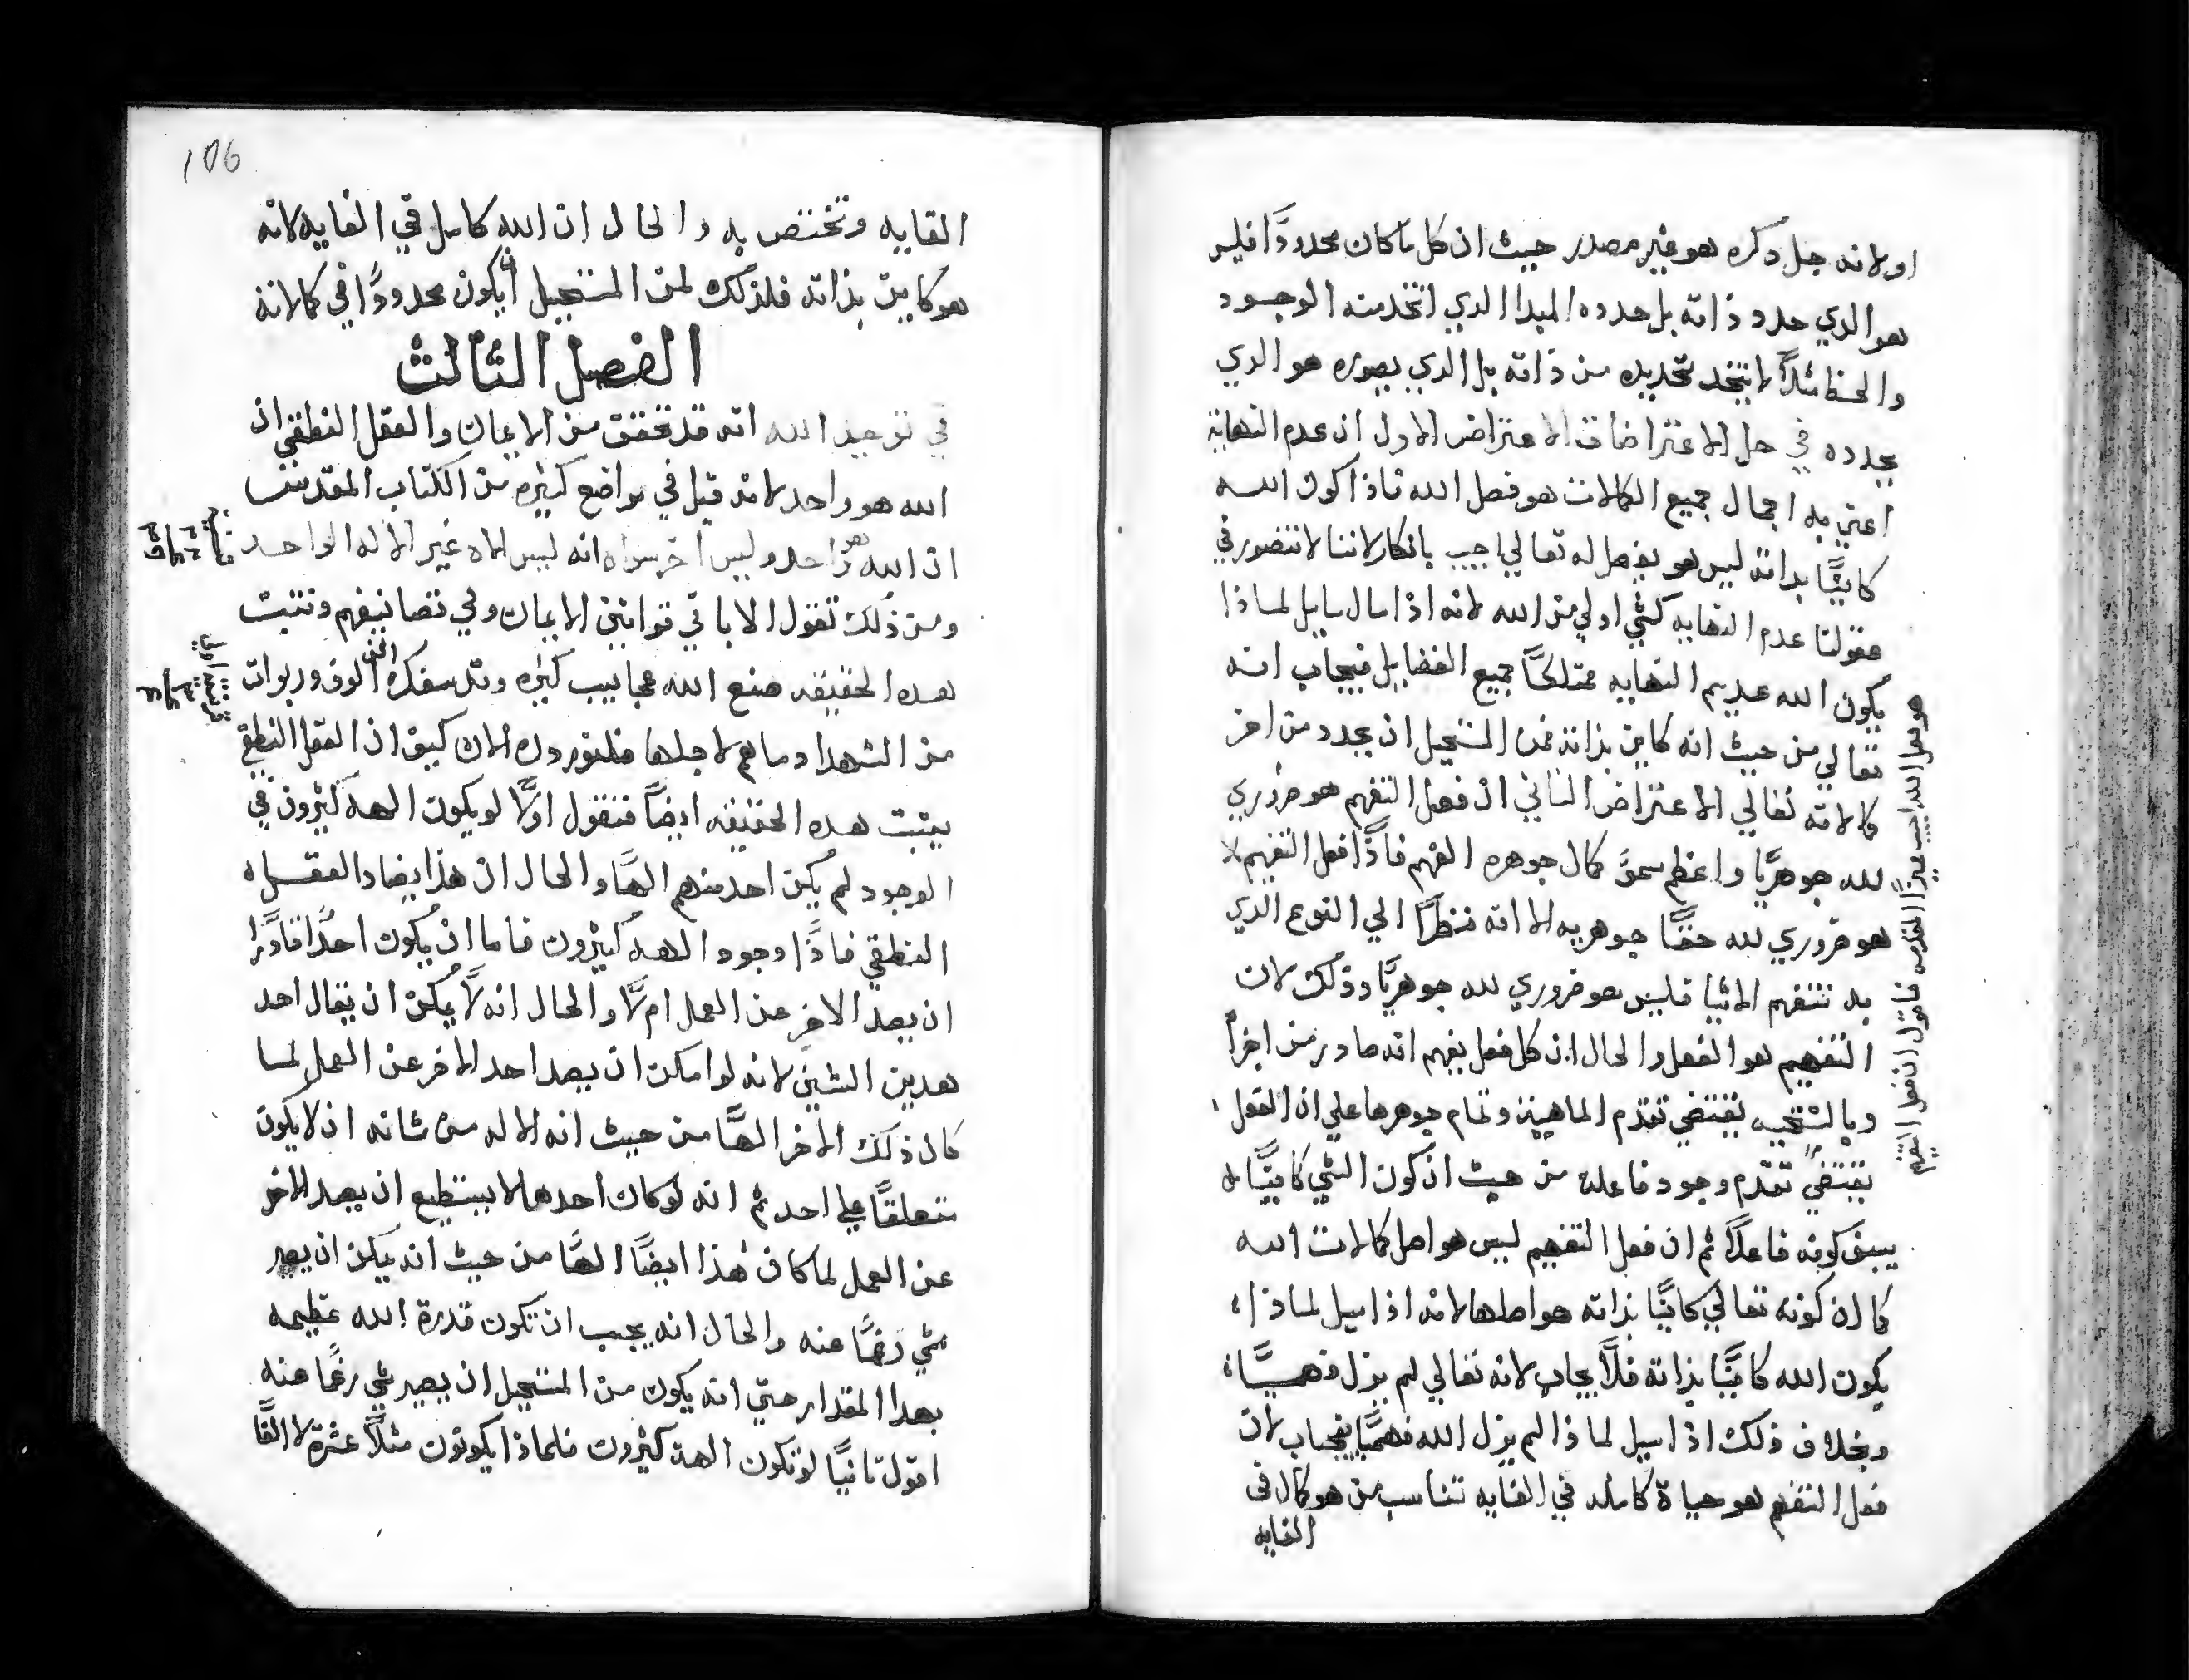 اولانه جل دكره هو غير مصدر حيث ان كل ما كان محدودًا فليس
هو الدي حدد ذاته بل حدده المبدا الدي اتخد منه الوجود
والحظ مثلاً لا يتخد تحديده من ذاته بل الدي يصوره هو الدي
يحدده في حل الاعتراضات الاعتراض الاول ان عدم النهاية
اعني به اجمال جميع الكمالات هو فصل الله فاذا كون الله
كاينًا بداته ليس هو بفصل له تعالي اجيب بانكار لاننا لا نتصور في
عقولنا عدم النهايه كشي اولي من الله لانه اذا سال سايل لماذا
يكون الله عديم النهايه ممتلكًا جميع الفضايل فيجاب انه
تعالي من حيث انه كاين بذاته فمن المستحيل ان يحدد من اخر
كمالاته تعالي الاعتراض الثاني ان فعل التفهم هو ضروري
لله جوهريًا واعظم سموًّ كمال جوهره الفهم فاذًا فعل التفهم لا
هو ضروري لله حقًا جوهريه الا انه نظرًا الي النوع الذي
به نتفهم الاشيا فليس هو ضروري لله جوهريًا وذلك لان
التفهم هو الفعل والحال ان كل فعل يفهم انه صادر من اخر
وبالنتيجه يقتضي تقدم الماهية وتمام جوهرها علي ان الفعل
يقتضي تقدم وجود فاعله من حيث ان كون الشي كاينًا
يسبق كونه فاعلاً ثم ان فعل التفهم ليس هو اصل كمالات الله
كما ان كونه تعالي كاينًا بذاته هو اصلها لانه اذا سيل لماذا
يكون الله كاينًا بذاته فلا يجاب لانه تعالي لم يزل فهميًا
وبخلاف ذلك اذا سيل لماذا لم يزل الله فهميًا فيجاب لان
فعل التفهم هو حياة كامله في الغايه تناسب من هو كمال في
الغايه
هو فعل الله اجيب مميزًا المقدمه فاقول ان فعل التفهم
106
الغايه وتختص به والحال ان الله كامل في الغايه لانه
هو كاين بذاته فلذلك لمن المستحيل ان يكون محدودًا في كمالاته
الفصل الثالث
في توحيد الله انه قد تحقق من الايمان والعقل النطقي ان
الله هو واحد لانه قيل في مواضع كثيره من الكتاب المقدس
ان الله هو واحد وليس اخر سواه انه ليس الاه غير الاله الواحد
ومن ذلك تقول الابا في قوانين الايمان وفي تصانيفهم ونتبت
هده الحقيقه صنع الله عجاييب كثيره وقد سفكت الوف وربوات
من الشهدا دماهم لاجلها فلنورد ده الان كيف ان العقل النطقي
يتبت هده الحقيقه ايضًا فنقول اولاً لو يكون الهه كثيرون في
الوجود لم يكن احد منهم الهًا والحال ان هذا يضاد العقل
النطقي فاذًا وجود الهه كثيرون فاما ان يكون احد قادرًا
ان يصد الاخر عن العمل ام لا والحال انه لا يمكن ان يقال احد
هدين الشين لانه لو امكن ان يصد احد الاخر عن العمل لما
كان ذلك الاخر الهًا من حيث انه الاله من شانه ان لا يكون
متعلقًا علي احد ثم انه لو كان احدهما لا يستطيع ان يصد الاخر
عن العمل لما كان هذا ايضًا الهًا من حيث انه يمكن ان يصير
شي رغمًا عنه والحال انه يجب ان تكون قدرة الله عظيمه
بهدا المقدار حتي انه يكون من المستحيل ان يصير شي رغمًا عنه
اقول تانيًا لو تكون الهه كثيرون فلماذا يكونون مثلاً عشرة لا الفًا